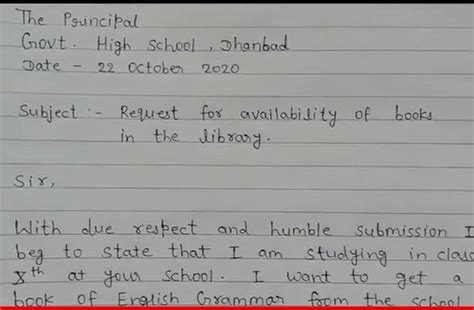 The Principal
Govt. High School, Dhanbad
Date - 22 October 2020
Subject :- Request for availability of books
in the library.
Sir,
With due respect and humble submission I
beg to state that I am studying in class
Xth at your school. I want to get a
book of English Grammar from the school